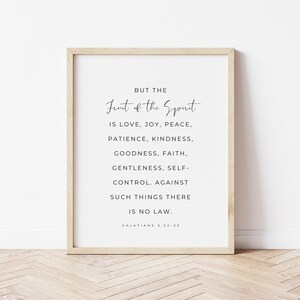 BUT THE
Fruit of the Spirit
IS LOVE, JOY, PEACE,
PATIENCE, KINDNESS,
GOODNESS, FAITH,
GENTLENESS, SELF-
CONTROL. AGAINST
SUCH THINGS THERE
IS NO LAW.
GALATIANS 5:22-23